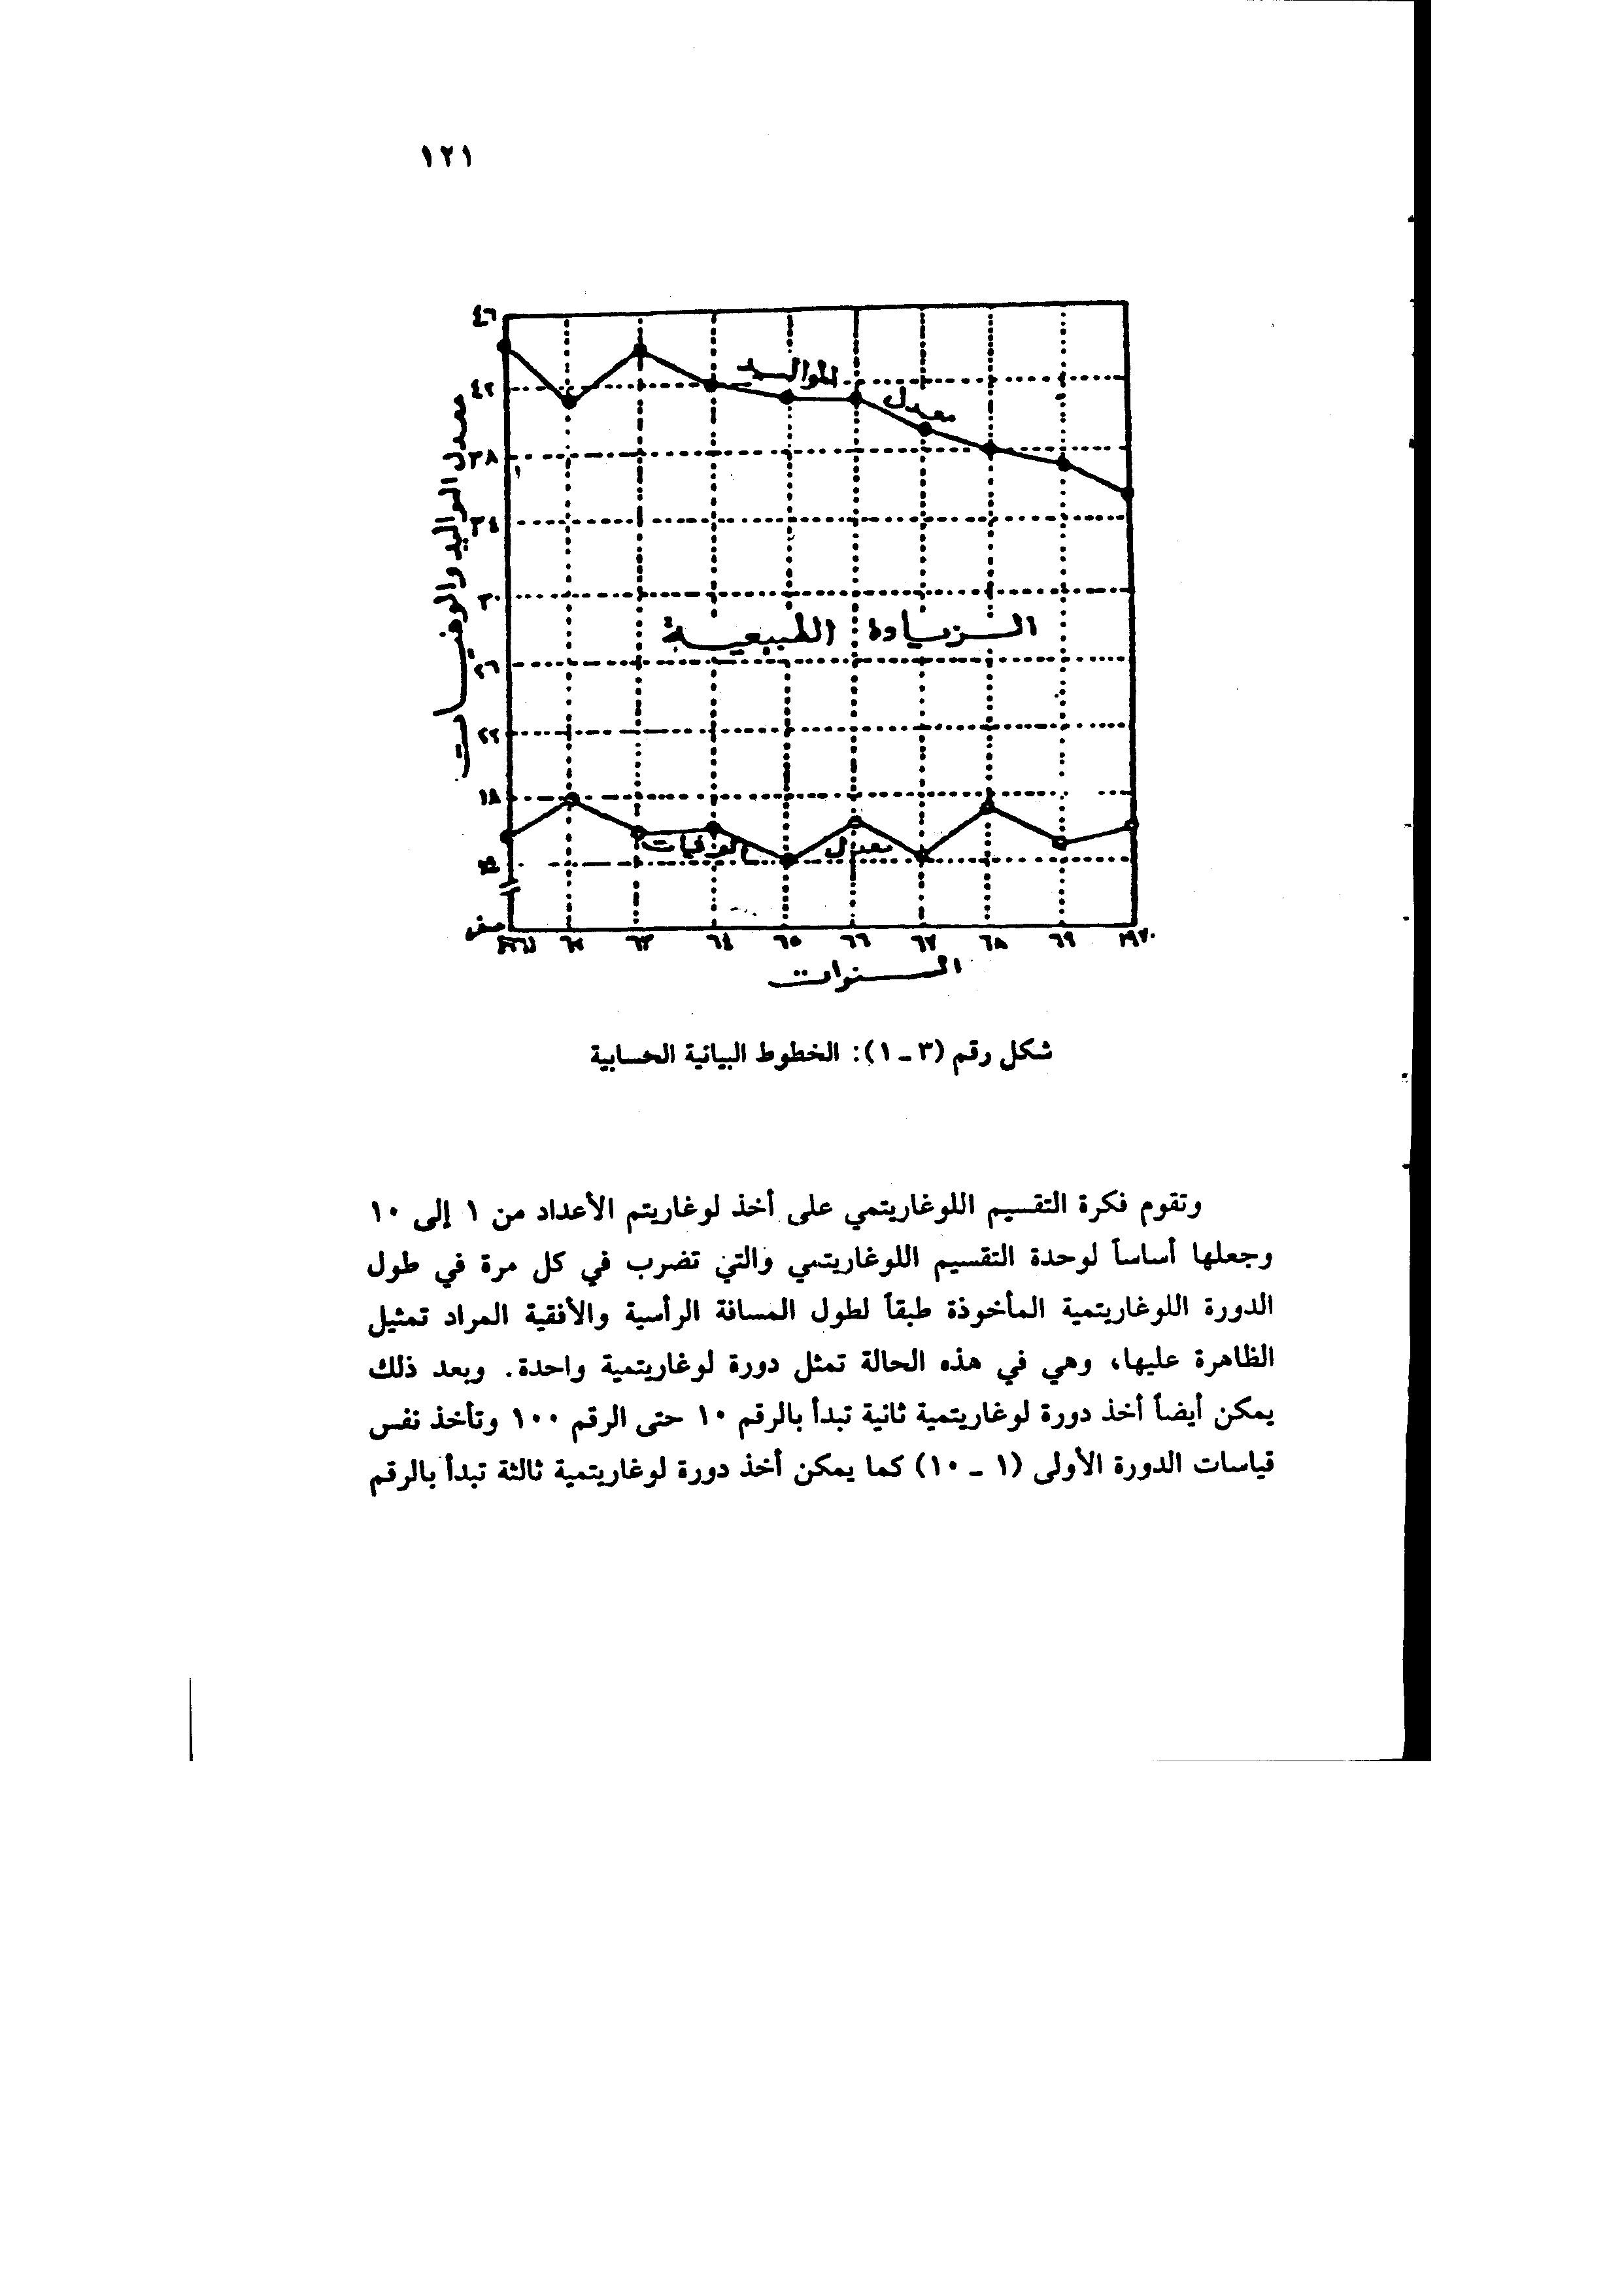 ١٢١
٤٦
٤٢
٣٨
٣٤
٣٠
٢٦
٢٢
١٨
١٤
صفر
معدل المواليد والوفيات
معدل المواليد
الزيادة الطبيعية
معدل الوفيات
١٩٦١ ٦٢ ٦٣ ٦٤ ٦٥ ٦٦ ٦٧ ٦٨ ٦٩ ١٩٧٠
السنوات
شكل رقم (٣ - ١): الخطوط البيانية الحسابية
وتقوم فكرة التقسيم اللوغاريتمي على أخذ لوغاريتم الأعداد من ١ إلى ١٠
وجعلها أساساً لوحدة التقسيم اللوغاريتمي والتي تضرب في كل مرة في طول
الدورة اللوغاريتمية المأخوذة طبقاً لطول المسافة الرأسية والأفقية المراد تمثيل
الظاهرة عليها، وهي في هذه الحالة تمثل دورة لوغاريتمية واحدة. وبعد ذلك
يمكن أيضاً أخذ دورة لوغاريتمية ثانية تبدأ بالرقم ١٠ حتى الرقم ١٠٠ وتأخذ نفس
قياسات الدورة الأولى (١ - ١٠) كما يمكن أخذ دورة لوغاريتمية ثالثة تبدأ بالرقم